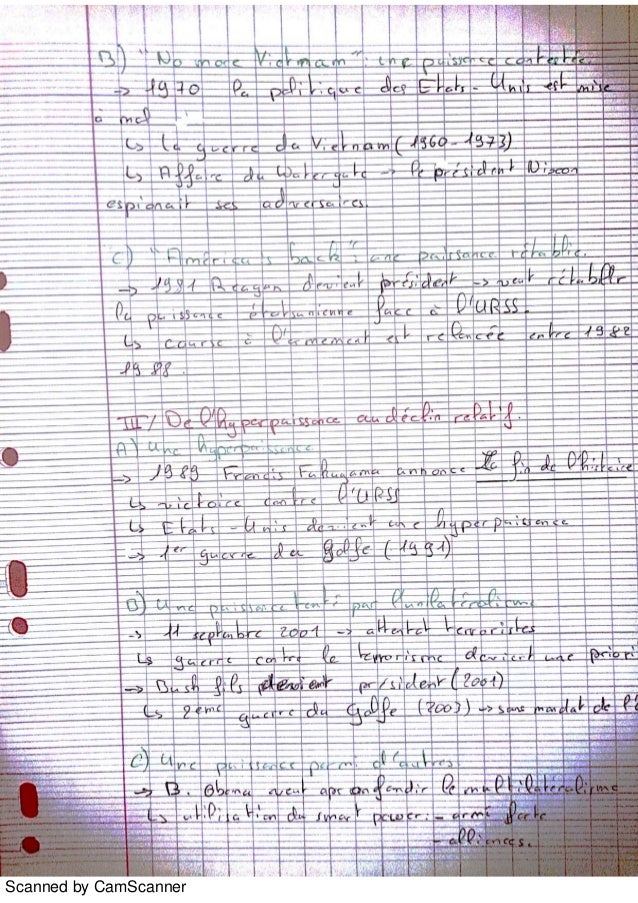 B) "No more Vietnam": une puissance contestée
→ 1970 la politique des Etats-Unis est mise
à mal :
↳ la guerre du Vietnam (1960-1973)
↳ Affaire du Watergate → le président Nixon
espionait ses adversaires.
C) "América is back": une puissance rétablie.
→ 1981 Reagan devient président → veut rétablir
la puissance étatsunienne face à l'URSS.
↳ course à l'armement est relancée entre 1982
1988.
III/ De l'hyperpuissance au déclin relatif.
A) Une hyperpuissance
→ 1989 Francis Fukuyama annonce la fin de l'histoire
↳ victoire contre l'URSS
↳ Etats-Unis devient une hyperpuissance
→ 1er guerre du Golfe (1991)
B) Une puissance tenté par l'unilatéralisme
→ 11 septembre 2001 → attentat terroristes
↳ guerre contre le terrorisme devient une priori
→ Bush fils devient président (2001)
↳ 2ème guerre du Golfe (2003) → sans mandat de l'O
C) Une puissance parmi d'autres
→ B. Obama veut approfondir le multilatéralisme
↳ utilisation du smart power: - armé forte
- alliances.
Scanned by CamScanner